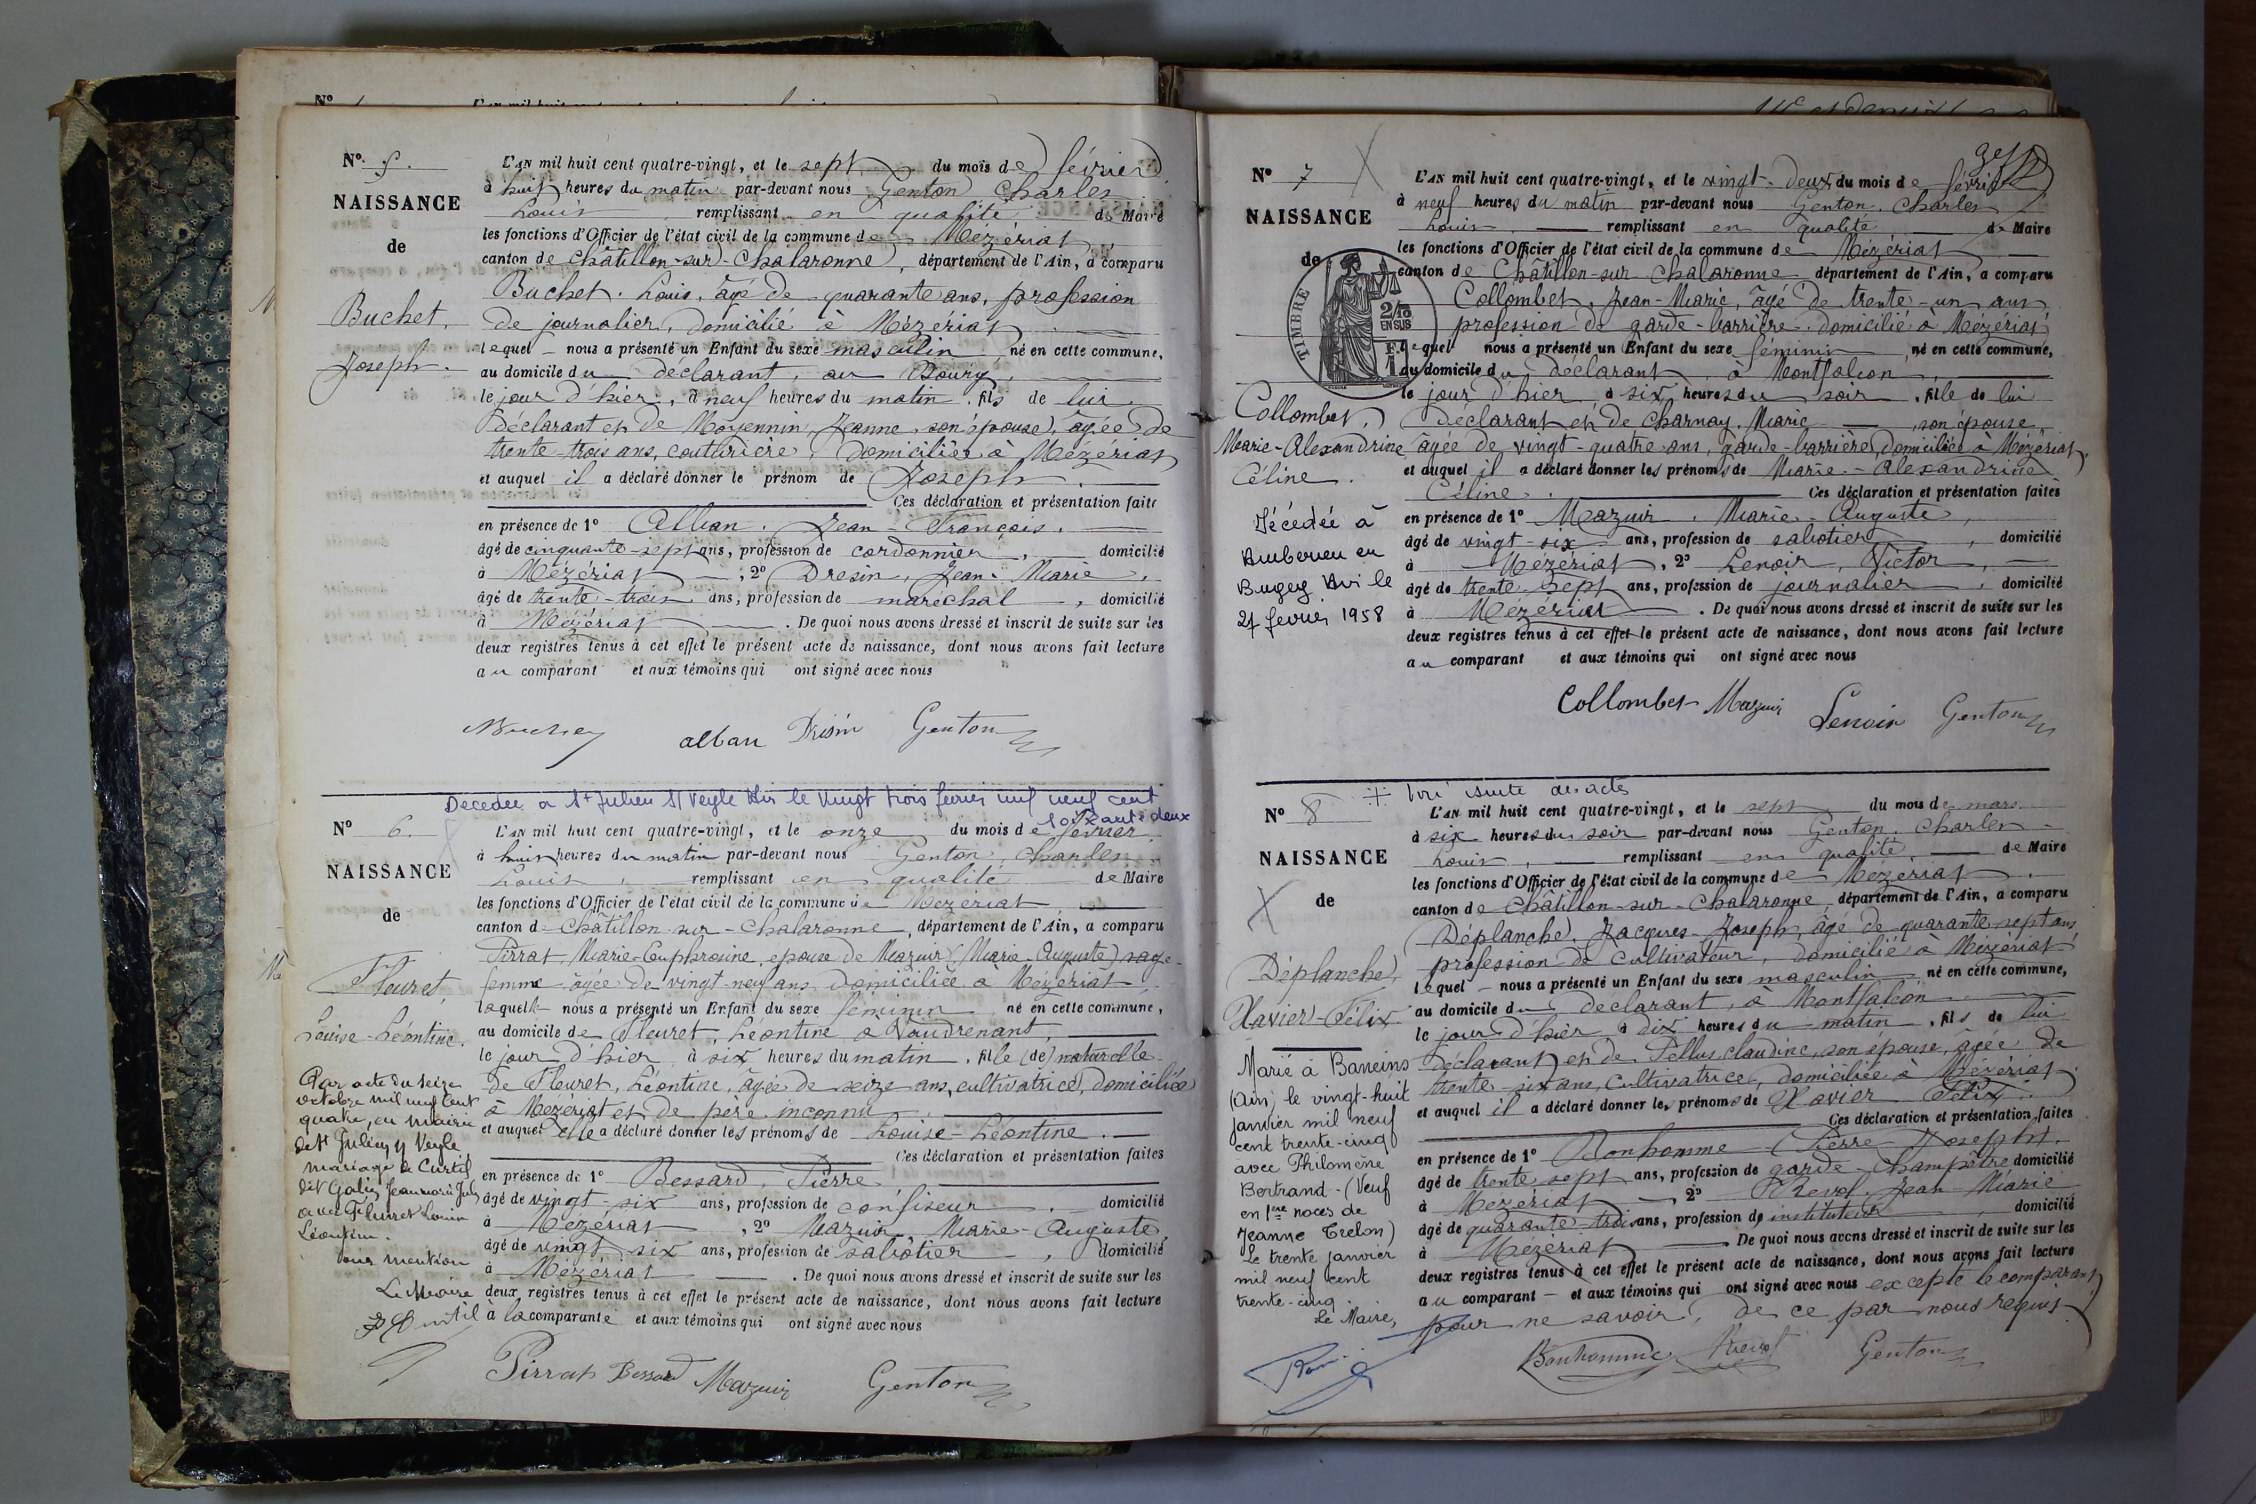 Nº 5.
NAISSANCE
de
Buchet.
Joseph.
L'AN mil huit cent quatre-vingt, et le sept du mois de février
à huit heures du matin par-devant nous Genton Charles
Louis remplissant en qualité de Maire
les fonctions d'Officier de l'état civil de la commune de Mézériat
canton de Châtillon-sur-Chalaronne, département de l'Ain, a comparu
Buchet. Louis, âgé de quarante ans, profession
de journalier, domicilié à Mézériat
lequel nous a présenté un Enfant du sexe masculin né en cette commune,
au domicile du déclarant, au Bourg,
le jour d'hier, à neuf heures du matin, fils de lui
déclarant et de Moyennin, Jeanne, son épouse, âgée de
trente trois ans, couturière, domiciliée à Mézériat
et auquel il a déclaré donner le prénom de Joseph.
Ces déclaration et présentation faite
en présence de 1º Alban. Jean-François.
âgé de cinquante-sept ans, profession de cordonnier, domicilié
à Mézériat, 2º Dresin, Jean-Marie,
âgé de trente-trois ans, profession de maréchal, domicilié
à Mézériat. De quoi nous avons dressé et inscrit de suite sur les
deux registres tenus à cet effet le présent acte de naissance, dont nous avons fait lecture
au comparant et aux témoins qui ont signé avec nous
alban Drisin Genton
Décédée à St Julien S/ Veyle Ain le vingt trois fevrier mil neuf cent
soixante deux
Nº 6.
NAISSANCE
de
Fleuret,
Louise-Léontine.
Par acte du seize
octobre mil neuf cent
quatre, en mairie
de St Julien s/ Veyle
mariage de Curtil
dit Galin Jean marie July
avec Fleuret Louise
Léontine.
Pour mention
Le Maire
L'AN mil huit cent quatre-vingt, et le onze du mois de février
à huit heures du matin par-devant nous Genton, Charles
Louis, remplissant en qualité de Maire
les fonctions d'Officier de l'état civil de la commune de Mézériat
canton de Châtillon-sur-Chalaronne, département de l'Ain, a comparu
Pirrat Marie-Euphrosine, épouse de Mazuir (Marie-Auguste) sage-
femme âgée de vingt-neuf ans domiciliée à Mézériat,
laquelle nous a présenté un Enfant du sexe féminin né en cette commune,
au domicile de Fleuret, Léontine à Vaudrenant,
le jour d'hier à six heures du matin, fille (de) naturelle
de Fleuret, Léontine, âgée de seize ans, cultivatrice, domiciliée
à Mézériat et de père inconnu
et auquel elle a déclaré donner les prénoms de Louise-Léontine.
Ces déclaration et présentation faites
en présence de 1º Bessard, Pierre
âgé de vingt-six ans, profession de confiseur, domicilié
à Mézériat, 2º Mazuir, Marie-Auguste,
âgé de vingt six ans, profession de sabotier, domicilié
à Mézériat. De quoi nous avons dressé et inscrit de suite sur les
deux registres tenus à cet effet le présent acte de naissance, dont nous avons fait lecture
à la comparante et aux témoins qui ont signé avec nous
Pirrat Bessard Mazuir Genton
Nº 7
NAISSANCE
de
TIMBRE
2/10
EN SUS
Collombet,
Marie-Alexandrine
Céline.
Décédée à
Amberieu en
Bugey Ain le
27 fevrier 1958
L'AN mil huit cent quatre-vingt, et le vingt-deux du mois de février
à neuf heures du matin par-devant nous Genton. Charles
Louis. remplissant en qualité de Maire
les fonctions d'Officier de l'état civil de la commune de Mézériat
canton de Châtillon-sur-Chalaronne département de l'Ain, a comparu
Collombet, Jean-Marie, âgé de trente-un ans
profession de garde-barrière. domicilié à Mézériat
lequel nous a présenté un Enfant du sexe féminin, né en cette commune,
au domicile du déclarant, à Montfalcon,
le jour d'hier à six heures du soir, fille de lui
déclarant et de Charnay. Marie son épouse,
âgée de vingt-quatre ans, garde-barrière, domiciliée à Mézériat
et auquel il a déclaré donner les prénoms de Marie-Alexandrine
Céline. Ces déclaration et présentation faites
en présence de 1º Mazuir, Marie-Auguste,
âgé de vingt-six ans, profession de sabotier, domicilié
à Mézériat, 2º Lenoir, Victor,
âgé de trente sept ans, profession de journalier, domicilié
à Mézériat. De quoi nous avons dressé et inscrit de suite sur les
deux registres tenus à cet effet le présent acte de naissance, dont nous avons fait lecture
au comparant et aux témoins qui ont signé avec nous
Collombet Mazuir Lenoir Genton
Nº 8
NAISSANCE
de
Déplanche,
Xavier-Félix
Marié à Baneins
(Ain) le vingt-huit
janvier mil neuf
cent trente-cinq
avec Philomène
Bertrand - (Veuf
en 1ère noces de
Jeanne Trelon)
Le trente janvier
mil neuf cent
trente-cinq.
Le Maire,
suite des actes
L'AN mil huit cent quatre-vingt, et le sept du mois de mars
à six heures du soir par-devant nous Genton. Charles
Louis, remplissant en qualité, de Maire
les fonctions d'Officier de l'état civil de la commune de Mézériat
canton de Châtillon-sur-Chalaronne, département de l'Ain, a comparu
Déplanche, Jacques-Joseph, âgé de quarante-sept ans,
profession de cultivateur, domicilié à Mézériat
lequel nous a présenté un Enfant du sexe masculin né en cette commune,
au domicile du déclarant, à Montfalcon
le jour d'hier à dix heures du matin, fils de lui
déclarant et de Pellus claudine, son épouse, âgée de
trente-six ans, cultivatrice, domiciliée à Mézériat
et auquel il a déclaré donner les prénoms de Xavier Félix.
Ces déclaration et présentation faites
en présence de 1º Bonhomme (Pierre-Joseph).
âgé de trente sept ans, profession de garde-champêtre domicilié
à Mézériat, 2º Revol. Jean-Marie
âgé de quarante-trois ans, profession de instituteur, domicilié
à Mézériat De quoi nous avons dressé et inscrit de suite sur les
deux registres tenus à cet effet le présent acte de naissance, dont nous avons fait lecture
au comparant et aux témoins qui ont signé avec nous excepté le comparant
pour ne savoir, de ce par nous requis.
Bonhomme Revol Genton